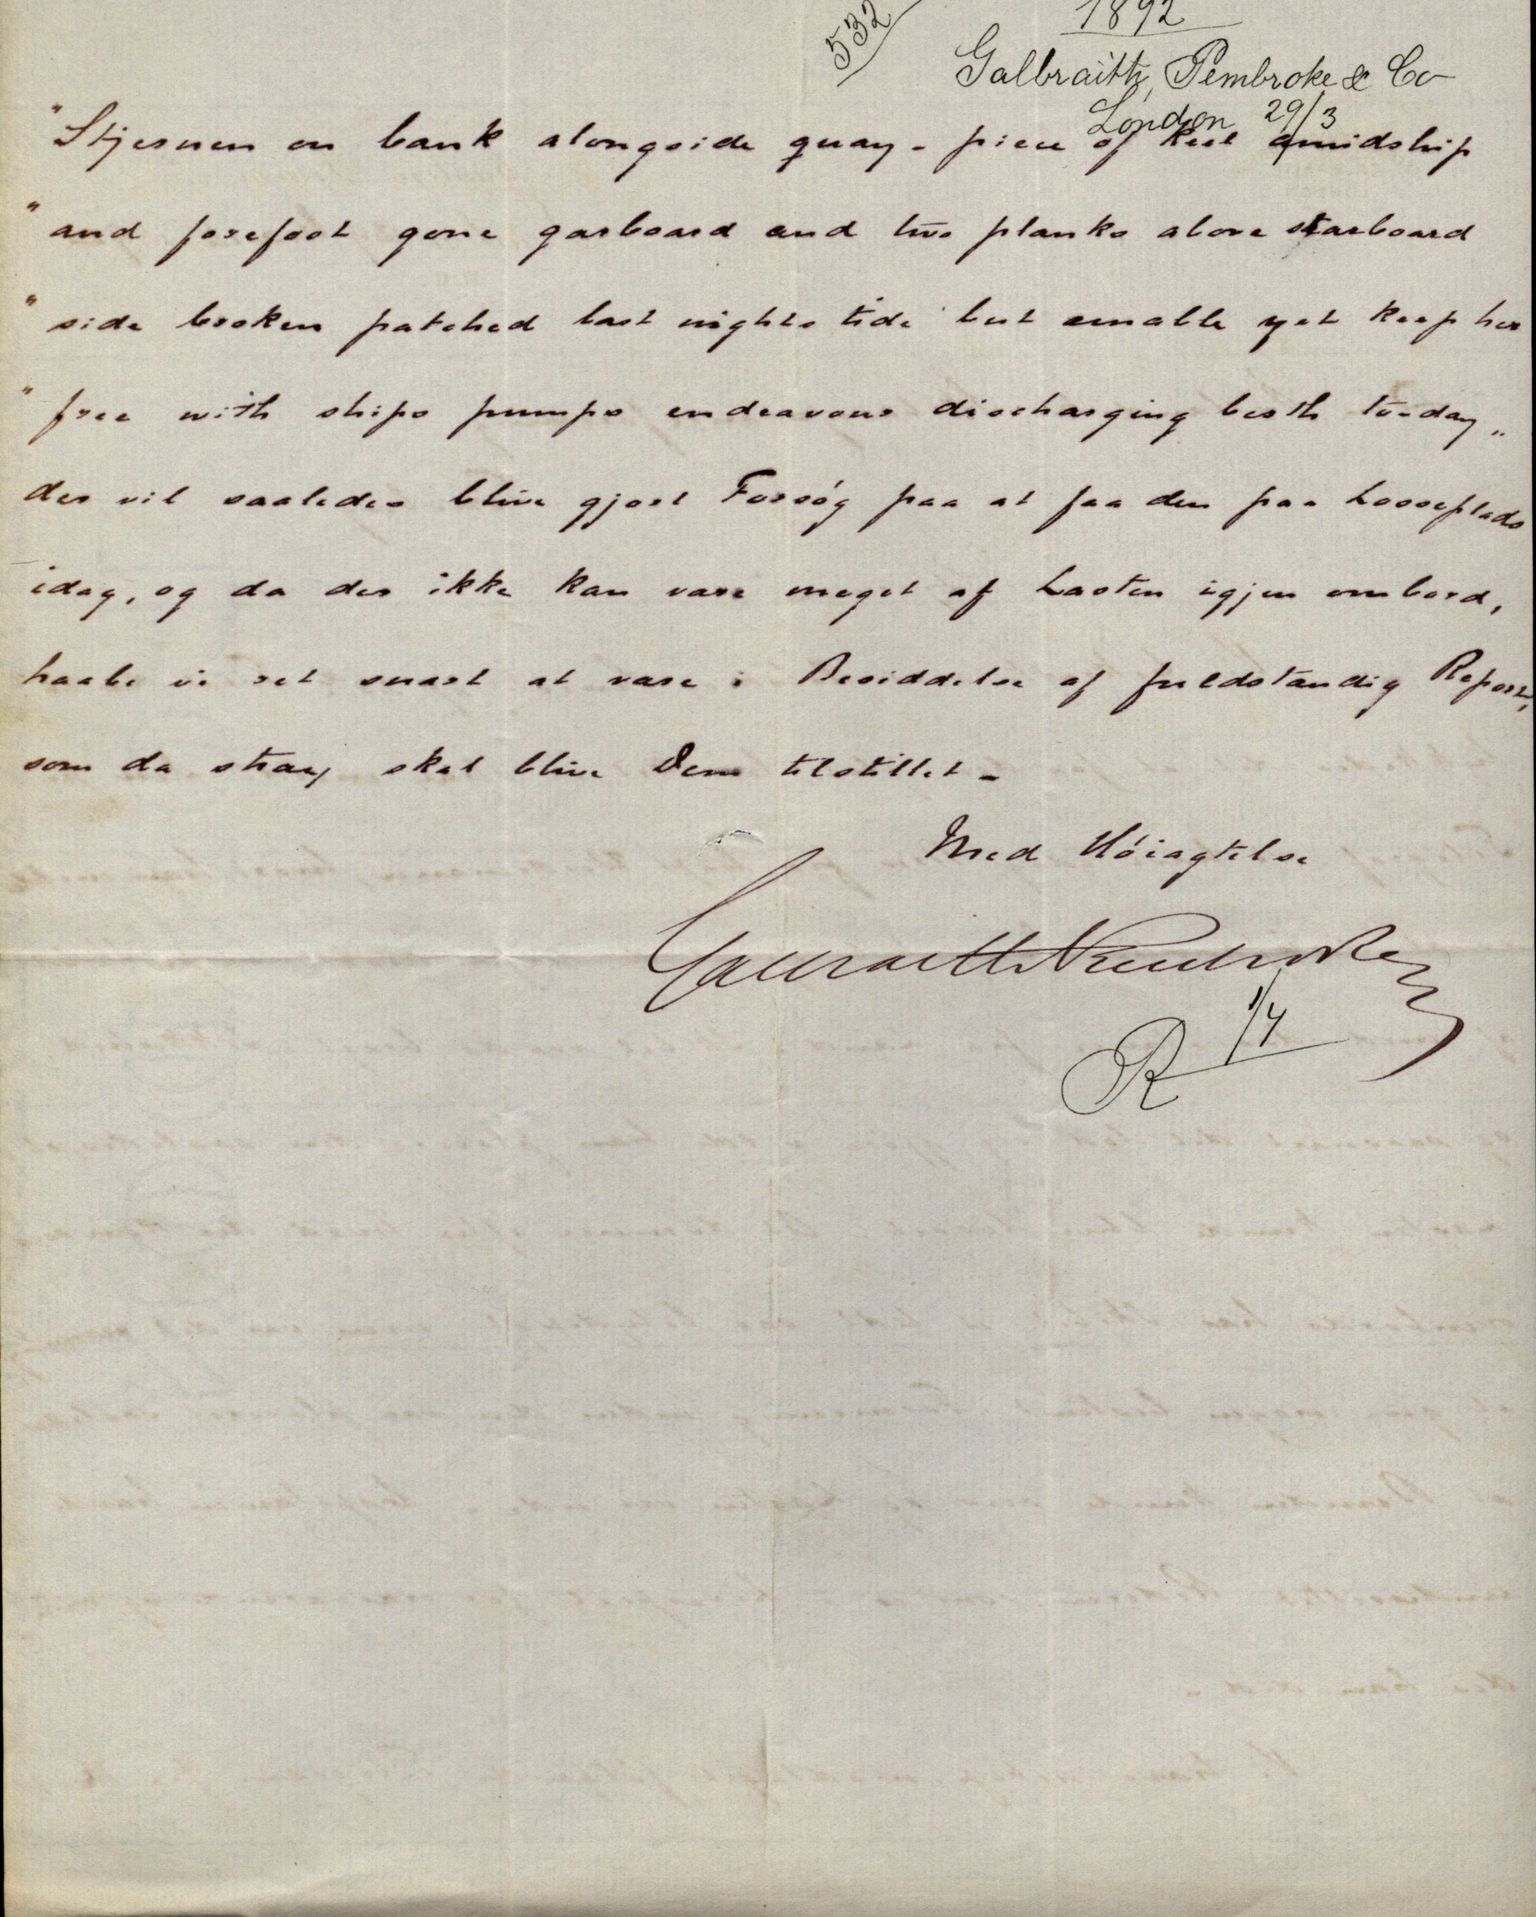 532
1892
Galbraith, Pembroke & Co
London 29/3
"Stjernen on bank alongside quay - piece of keel amidship
"and forefoot gone garboard and two planks above starboard
"side broken patched last nights tide but unable yet keep her
"free with ships pumps endeavour discharging berth to-day"
der vil saaledes blive gjort Forsóg paa at faa den paa Losseplads
idag, og da der ikke kan være meget af Lasten igjen ombord,
haabe vi ret snart at være i Besiddelse af fuldstændig Report,
som da strax skal blive Dem tilstillet -
Med Hóiagtelse
Galbraith Pembroke
R 1/4